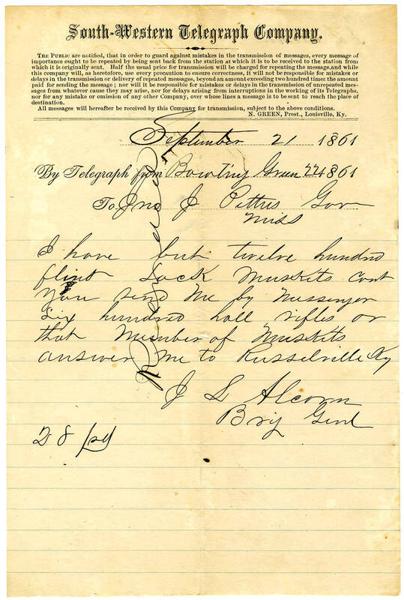 South-Western Telegraph Company.
THE PUBLIC are notified, that in order to guard against mistakes in the transmission of messages, every message of
importance ought to be repeated by being sent back from the station at which it is to be received to the station from
which it is originally sent. Half the usual price for transmission will be charged for repeating the message, and while
this company will, as heretofore, use every precaution to ensure correctness, it will not be responsible for mistakes or
delays in the transmission or delivery of repeated messages, beyond an amount exceeding two hundred times the amount
paid for sending the message; nor will it be responsible for mistakes or delays in the transmission of unrepeated messa-
ges from whatever cause they may arise, nor for delays arising from interruptions in the working of its Telegraphs,
nor for any mistake or omission of any other Company, over whose lines a message is to be sent to reach the place of
destination.
All messages will hereafter be received by this Company for transmission, subject to the above conditions.
N. GREEN, Prest., Louisville, Ky.
September 21 1861
By Telegraph from Bowling Green 22 1861
To Jno J Pettus Gov
Miss
I have but twelve hundred
flint Lock Muskets Cant
You send Me by Messenger
Six hundred hall rifles or
that Number of Muskets
answer Me to Russelville Ky
J L Alcorn
Brig Genl
28 pd